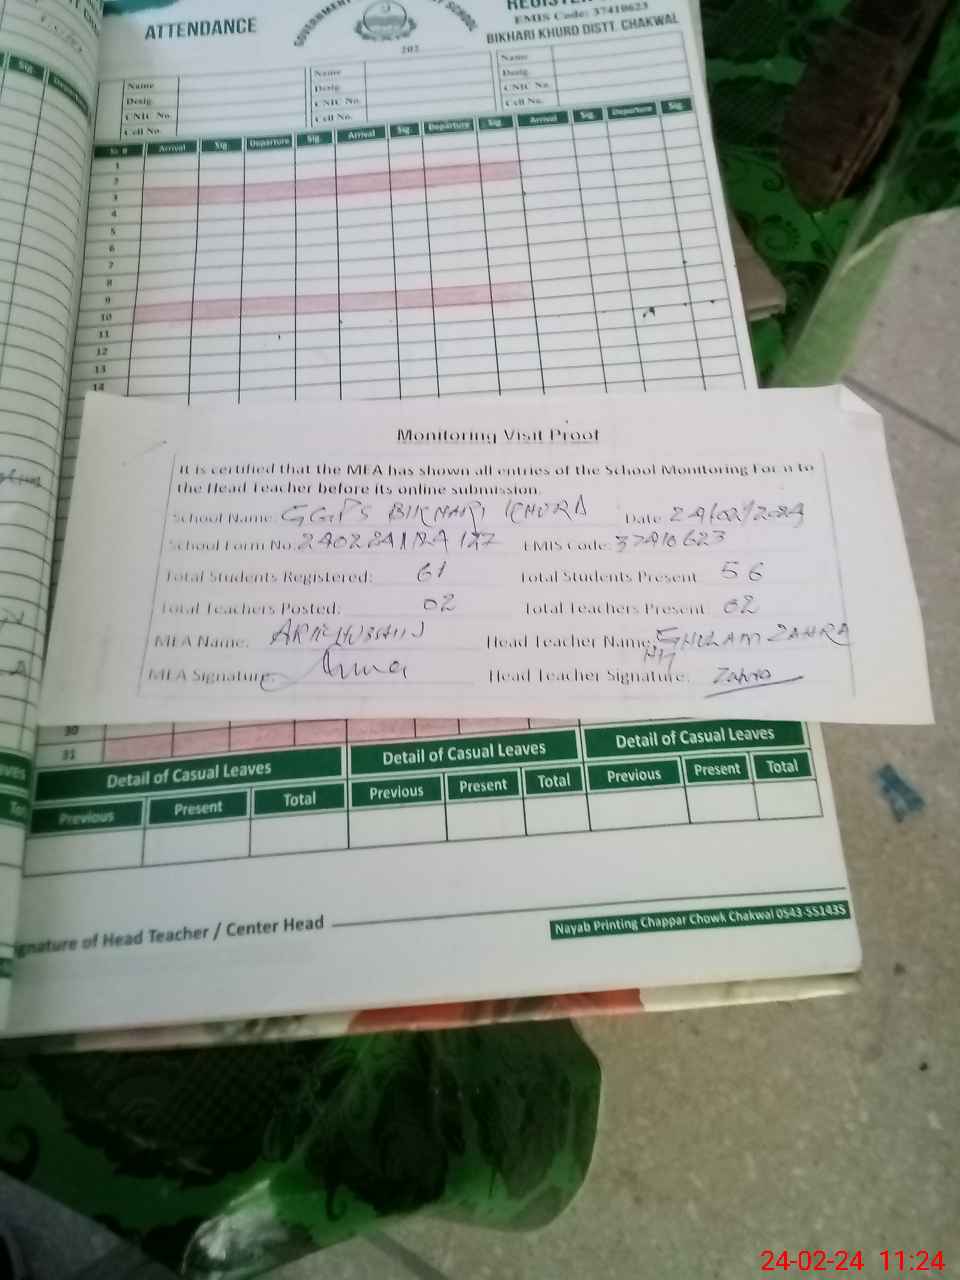 ATTENDANCE
GOVERNMENT SCHOOL
REGISTER
EMIS Code: 37410623
BIKHARI KHURD DISTT. CHAKWAL
202
Name Name Name
Desig. Desig. Desig.
CNIC No. CNIC No. CNIC No.
Cell No. Cell No. Cell No.
Sr. # Arrival Sig. Departure Sig. Arrival Sig. Departure Sig. Arrival Sig. Departure Sig.
1
2
3
4
5
6
7
8
9
10
11
12
13
14
Monitoring Visit Proof
It is certified that the MEA has shown all entries of the School Monitoring Form to
the Head Teacher before its online submission.
School Name: GGPS BIKHARI KHURD Date: 24/02/2024
School Form No: EMIS Code: 37410623
Total Students Registered: 61 Total Students Present 56
Total Teachers Posted: 02 Total Teachers Present: 02
MEA Name: Head Teacher Name: GHULAM ZAHRA
MEA Signature: Head Teacher Signature: Zahra
30
31
Detail of Casual Leaves Detail of Casual Leaves Detail of Casual Leaves
Previous Present Total Previous Present Total Previous Present Total
gnature of Head Teacher / Center Head
Nayab Printing Chappar Chowk Chakwal 0543-551435
24-02-24 11:24